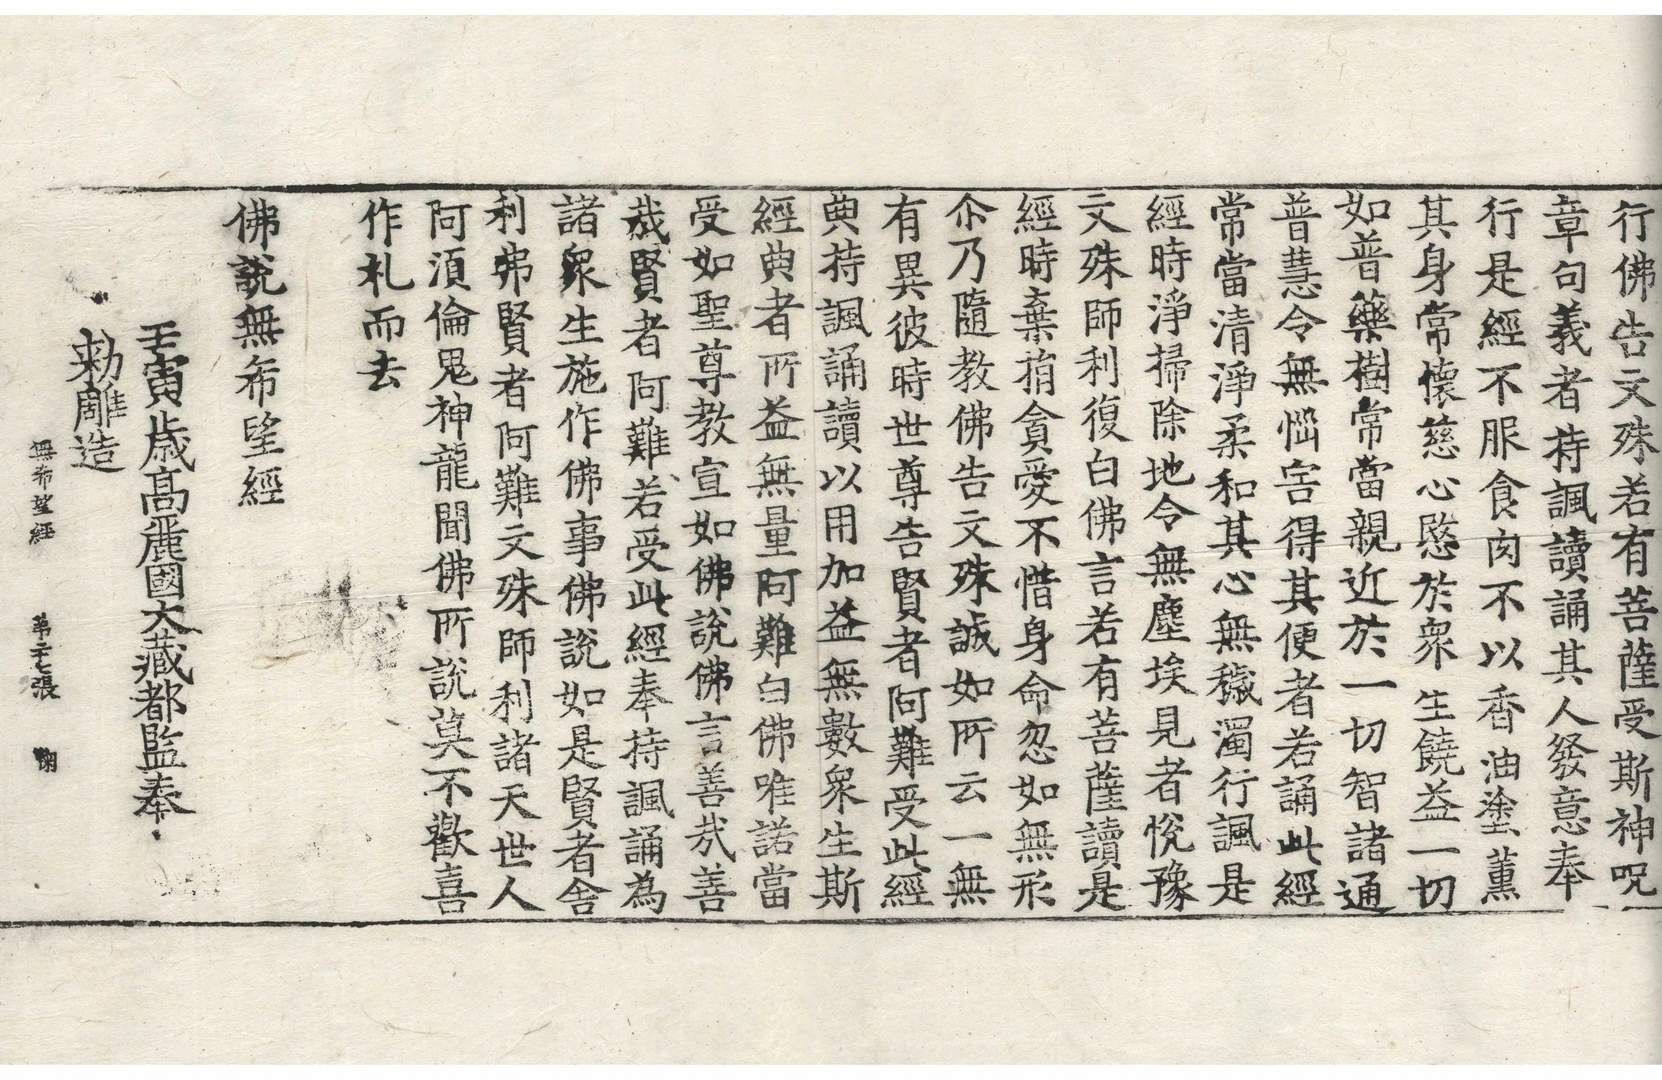 行佛告文殊若有菩薩受斯神呪
章句義者持諷讀誦其人發意奉
行是經不服食肉不以香油塗薰
其身常懷慈心愍於衆生饒益一切
如普藥樹常當親近於一切智諸通
普慧令無惱害得其便者若誦此經
常當清淨柔和其心無穢濁行諷是
經時淨掃除地令無塵埃見者悅豫
文殊師利復白佛言若有菩薩讀是
經時棄捐貪愛不惜身命忽如無形
尒乃隨教佛告文殊誠如所云一無
有異彼時世尊告賢者阿難受此經
典持諷誦讀以用加益無數衆生斯
經典者所益無量阿難白佛唯諾當
受如聖尊教宣如佛說佛言善哉善
哉賢者阿難若受此經奉持諷誦為
諸衆生施作佛事佛說如是賢者舍
利弗賢者阿難文殊師利諸天世人
阿須倫鬼神龍聞佛所說莫不歡喜
作礼而去
佛說無希望經
壬寅歲高麗國大藏都監奉
勑雕造
無希望經 第二十七張 鞠